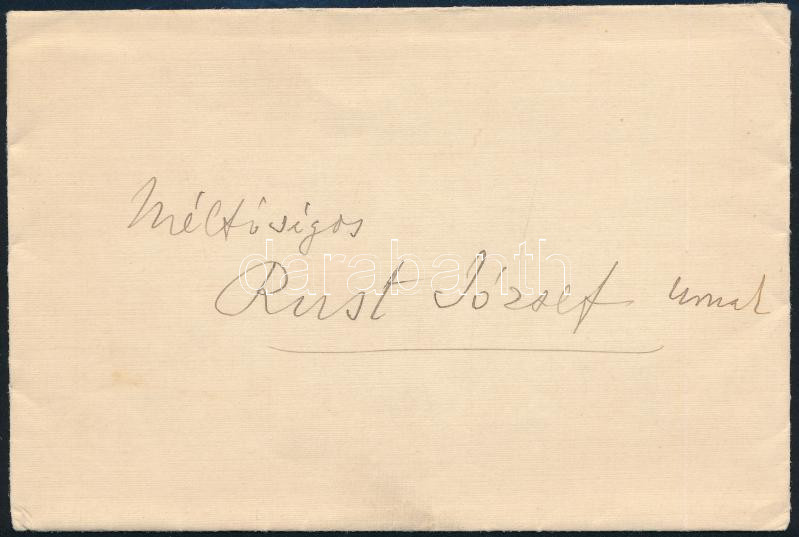 Méltóságos
darabanth
Rust József urnak